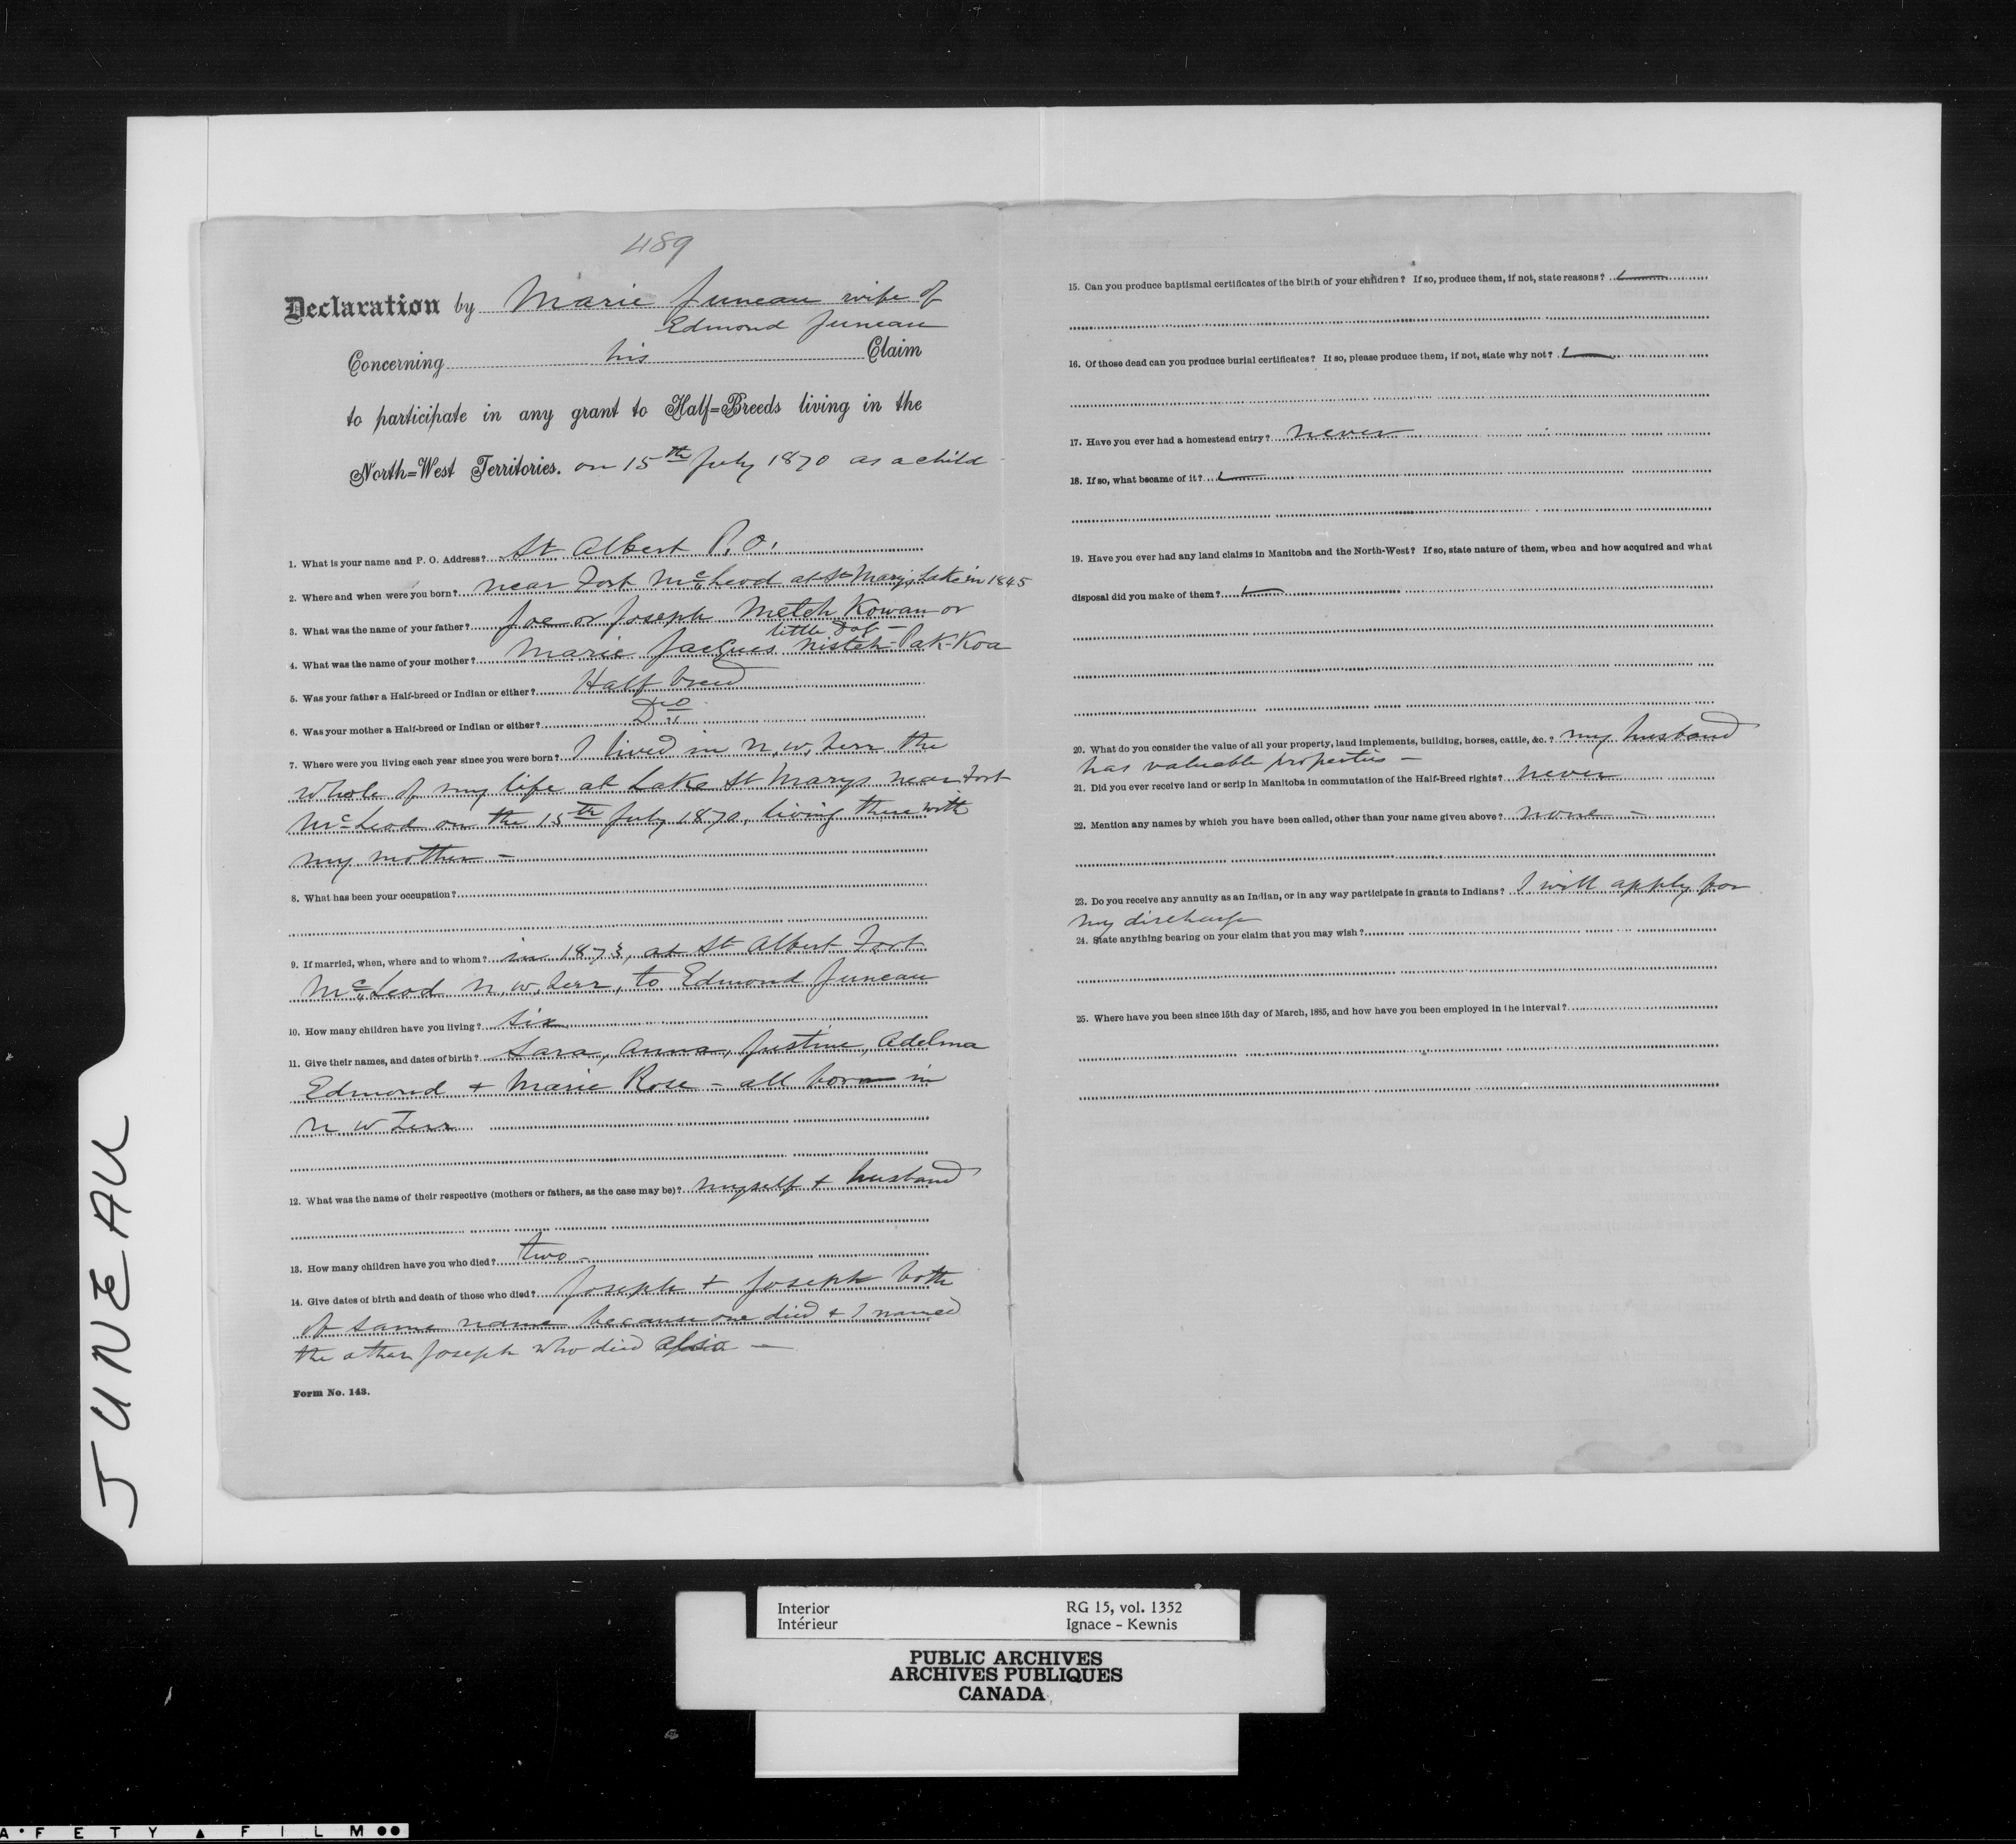 489
Declaration by Marie Juneau wife of
Edmond Juneau
Concerning his Claim
to participate in any grant to Half=Breeds living in the
North=West Territories. on 15th July 1870 as a child
1. What is your name and P. O. Address? St Albert P.O.
2. Where and when were you born? near Fort McLeod at St Marys Lake in 1845
3. What was the name of your father? Joe or Joseph Metch Kowan or
little
4. What was the name of your mother? Marie Jacques Nistch-Pak-Koa
5. Was your father a Half-breed or Indian or either? Half breed
6. Was your mother a Half-breed or Indian or either? Do
7. Where were you living each year since you were born? I lived in N.W. Terr the
whole of my life at Lake St Marys near Fort
McLeod on the 15th July 1870, living there with
my mother -
8. What has been your occupation?
9. If married, when, where and to whom? in 1873, at St Albert Fort
McLeod N.W. Terr, to Edmond Juneau
10. How many children have you living? six
11. Give their names, and dates of birth? Sara, Anna, Justine, Adelma
Edmond + Marie Rose - all born in
N W Terr
12. What was the name of their respective (mothers or fathers, as the case may be)? myself + husband
13. How many children have you who died? two -
14. Give dates of birth and death of those who died? Joseph + Joseph both
of same name because one died + I named
the other Joseph who died also -
Form No. 143.
15. Can you produce baptismal certificates of the birth of your children? If so, produce them, if not, state reasons?
16. Of those dead can you produce burial certificates? If so, please produce them, if not, state why not?
17. Have you ever had a homestead entry? never
18. If so, what became of it?
19. Have you ever had any land claims in Manitoba and the North-West? If so, state nature of them, when and how acquired and what
disposal did you make of them?
20. What do you consider the value of all your property, land implements, building, horses, cattle, &c.? my husband
has valuable properties -
21. Did you ever receive land or scrip in Manitoba in commutation of the Half-Breed rights? never
22. Mention any names by which you have been called, other than your name given above? none -
23. Do you receive any annuity as an Indian, or in any way participate in grants to Indians? I will apply for
my discharge
24. State anything bearing on your claim that you may wish?
25. Where have you been since 15th day of March, 1885, and how have you been employed in the interval?
JUNEAU
Interior RG 15, vol. 1352
Intérieur Ignace - Kewnis
PUBLIC ARCHIVES
ARCHIVES PUBLIQUES
CANADA
AFETY ▲ FILM ●●